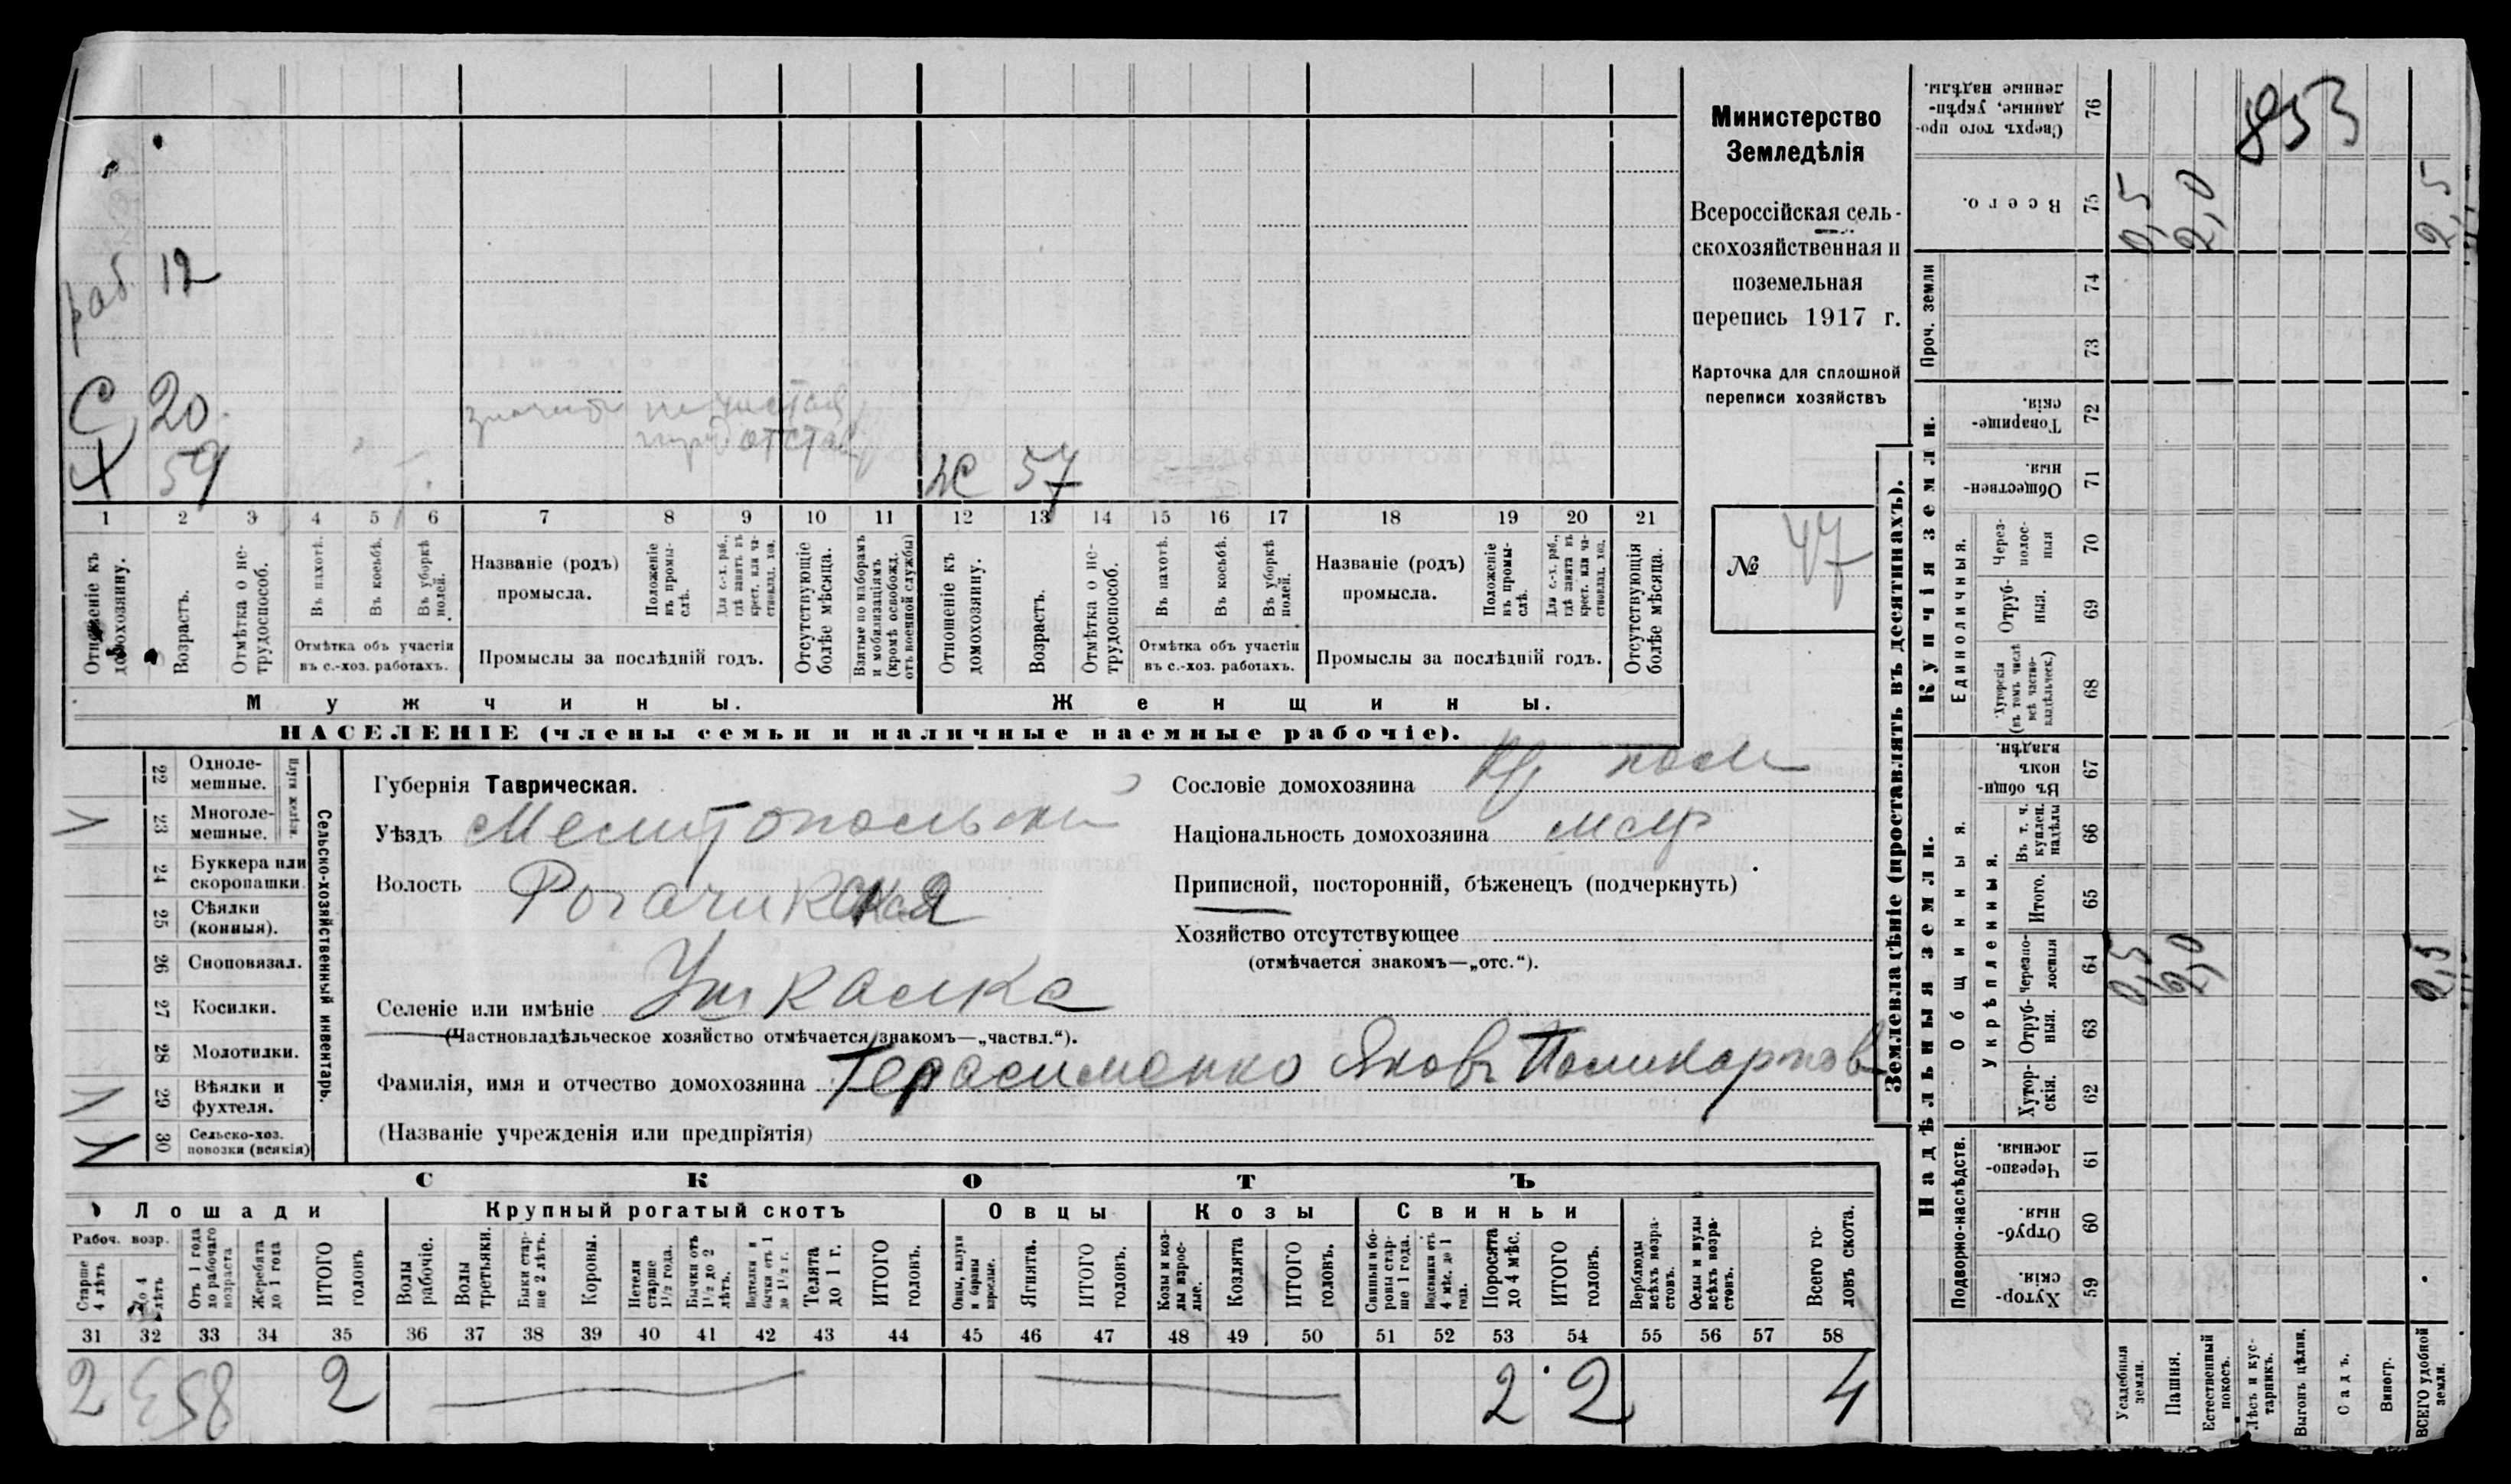 раб. 12
С 20
Х 59
Ж 57
1 2 3 4 5 6 7 8 9 10 11 12 13 14 15 16 17 18 19 20 21
Отношеніе къ домохозяину.
Возрастъ.
Отмѣтка о нетрудоспособ.
Въ пахотѣ.
Въ косьбѣ.
Въ уборкѣ полей.
Отмѣтка объ участіи
въ с.-хоз. работахъ.
Названіе (родъ)
промысла.
Положеніе въ промыслѣ.
Для с.-х. раб., гдѣ занятъ въ крест. или частновлад. хоз.
Промыслы за послѣдній годъ.
Отсутствующіе болѣе мѣсяца.
Взятые по наборамъ и мобилизаціямъ (кромѣ освобожд. отъ военной службы)
Отношеніе къ домохозяину.
Возрастъ.
Отмѣтка о нетрудоспособ.
Въ пахотѣ.
Въ косьбѣ.
Въ уборкѣ полей.
Отмѣтка объ участіи
въ с.-хоз. работахъ.
Названіе (родъ)
промысла.
Положеніе въ промыслѣ.
Для с.-х. раб., гдѣ занята въ крест. или частновлад. хоз.
Промыслы за послѣдній годъ.
Отсутствующія болѣе мѣсяца.
Мужчины.
Женщины.
НАСЕЛЕНІЕ (члены семьи и наличные наемные рабочіе).
Министерство
Земледѣлія
Всероссійская сель-
скохозяйственная и
поземельная
перепись 1917 г.
Карточка для сплошной
переписи хозяйствъ
№ 47
22 Одноле-
мешные.
23 Многоле-
мешные.
24 Буккера или
скоропашки.
25 Сѣялки
(конныя).
26 Сноповязал.
27 Косилки.
28 Молотилки.
29 Вѣялки и
фухтеля.
30 Сельско-хоз.
повозки (всякія)
Сельско-хозяйственный инвентарь.
Губернія Таврическая.
Уѣздъ Мелитопольскій
Волость Рогачикская
Селеніе или имѣніе Ушкалка
(Частновладѣльческое хозяйство отмѣчается знакомъ—„частвл.“).
Фамилія, имя и отчество домохозяина Герасименко Яковъ Поликарпов
(Названіе учрежденія или предпріятія)
Сословіе домохозяина Кр. посел
Національность домохозяина малр
Приписной, посторонній, бѣженецъ (подчеркнуть)
Хозяйство отсутствующее
(отмѣчается знакомъ—„отс.“).
СКОТЪ
Лошади
Крупный рогатый скотъ
Овцы
Козы
Свиньи
Рабоч. возр.
Старше 4 лѣтъ
До 4 лѣтъ
Отъ 1 года до рабочаго возраста
Жеребята до 1 года
ИТОГО головъ
Волы рабочіе.
Волы третьяки.
Быки старше 2 лѣтъ.
Коровы.
Нетели старше 1½ года.
Бычки отъ 1½ до 2 лѣтъ.
Подтелки и бычки отъ 1 до 1½ г.
Телята до 1 г.
ИТОГО головъ.
Овцы, валухи и бараны взрослые.
Ягнята.
ИТОГО головъ.
Козы и козлы взрослые.
Козлята
ИТОГО головъ.
Свиньи и боровы старше 1 года.
Подсвинки отъ 4 мѣс. до 1 года.
Поросята до 4 мѣс.
ИТОГО головъ.
Верблюды всѣхъ возрастовъ.
Ослы и мулы всѣхъ возрастовъ.
Всего головъ скота.
31 32 33 34 35 36 37 38 39 40 41 42 43 44 45 46 47 48 49 50 51 52 53 54 55 56 57 58
2 853 2 2 2 4
Землевладѣніе (проставлять въ десятинахъ).
Купчія земли.
Надѣльныя земли.
Проч. земли
Единоличныя.
Общинныя.
Укрѣпленныя.
Подворно-наслѣдств.
76 Сверхъ того проданные, укрѣпленные надѣлы.
75 Всего.
74
73
72 Товарищескія.
71 Общественныя.
70 Черезполосныя
69 Отрубныя.
68 Хуторскія (въ томъ числѣ всѣ частновладѣльческ.)
67 Въ общинномъ владѣн.
66 Въ т. ч. куплен. надѣлы
65 Итого.
64 Черезполосныя
63 Отрубныя.
62 Хуторскія.
61 Черезполосныя.
60 Отрубныя.
59 Хуторскія.
Усадебныя земли.
Пашня.
Естественный покосъ.
Лѣсъ и кустарникъ.
Выгонъ цѣлин.
Садъ.
Виногр.
ВСЕГО удобной земли.
853
0,5 2,0 2,5
0,5 2,0 2,5